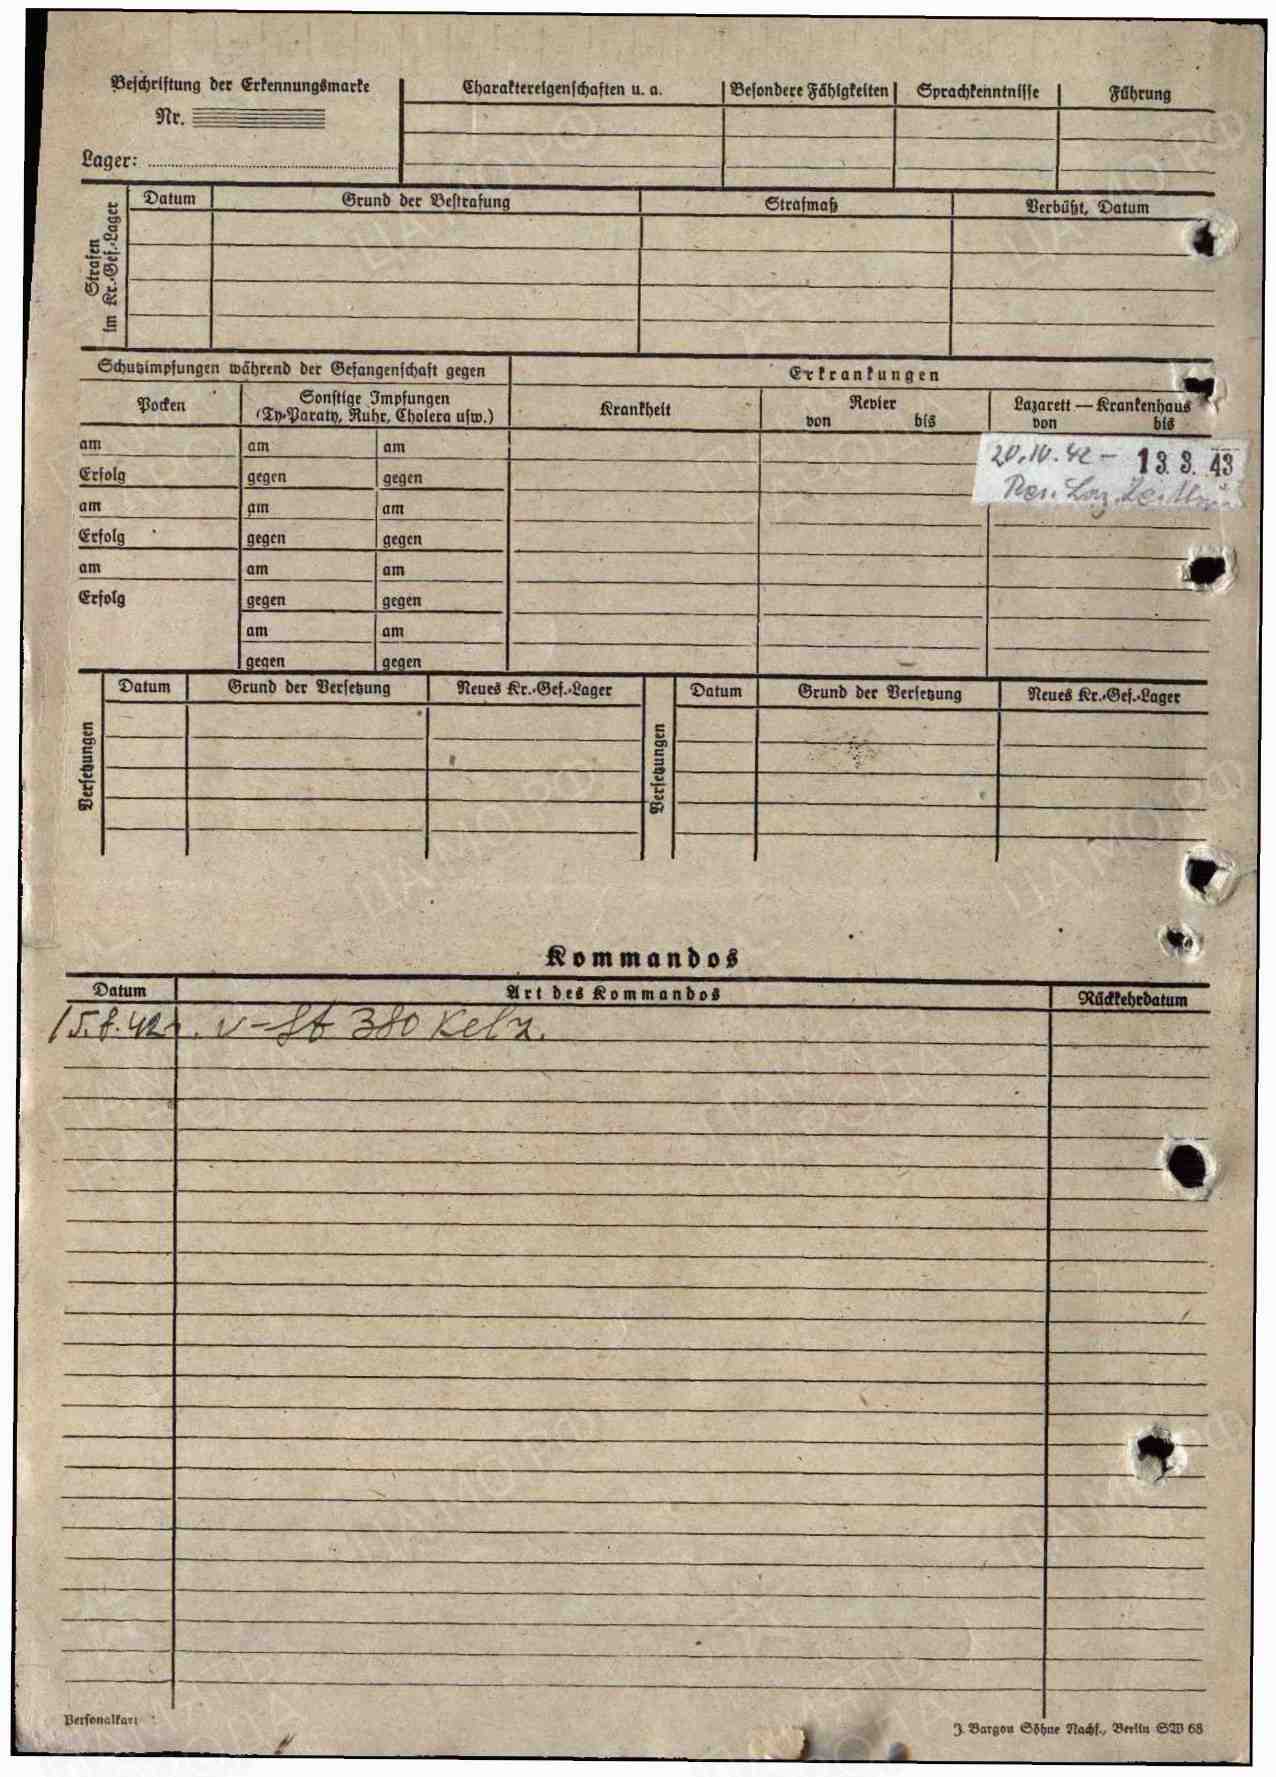 Beschriftung der Erkennungsmarke
Nr.
Lager:
Charaktereigenschaften u. a. Besondere Fähigkeiten Sprachkenntnisse Führung
Strafen im Kr.-Gef.-Lager
Datum Grund der Bestrafung Strafmaß Verbüßt, Datum
Schutzimpfungen während der Gefangenschaft gegen
Erkrankungen
Pocken
Sonstige Impfungen
(Ty-Paraty, Ruhr, Cholera usw.)
Krankheit
Revier
von bis
Lazarett — Krankenhaus
von bis
am am am
20.10.42 – 13. 3. 43
Erfolg gegen gegen
Res. Laz.
am am am
Erfolg gegen gegen
am am am
Erfolg gegen gegen
am am
gegen gegen
Versetzungen
Datum Grund der Versetzung Neues Kr.-Gef.-Lager
Versetzungen
Datum Grund der Versetzung Neues Kr.-Gef.-Lager
Kommandos
Datum Art des Kommandos Rückkehrdatum
15.8.42 380
Personalkart
J. Bargou Söhne Nachf., Berlin SW 68
ЦАМО РФ